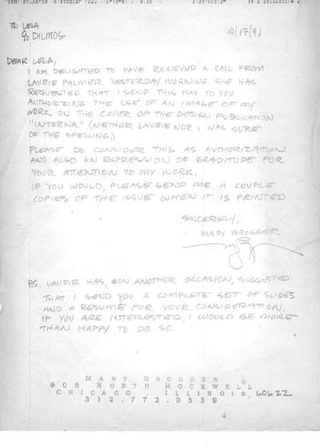 TO: LELA
℅ DILMOS
10/17/91
DEAR LELA,
I AM DELIGHTED TO HAVE RECIEVED A CALL FROM
LAURIE PALMER YESTERDAY MORNING. SHE HAS
REQUESTED THAT I SEND THIS FAX TO YOU
AUTHORIZING THE USE OF AN IMAGE OF MY
WORK ON THE COVER OF THE DESIGN PUBLICATION
"INTERNA." (NIETHER LAURIE NOR I WAS SURE
OF THE SPELLING)
PLEASE DO CONSIDER THIS AS AUTHORIZATION
AND ALSO AN EXPRESSION OF GRADITUDE FOR
YOUR ATTENTION TO MY WORK.
IF YOU WOULD, PLEASE SEND ME A COUPLE
COPIES OF THE ISSUE WHEN IT IS PRINTED
SINCERELY,
MARY BROGGER
PS. LAURIE HAS, ON ANOTHER OCCASION, SUGGESTED
THAT I SEND YOU A COMPLETE SET OF SLIDES
AND A RESUME FOR YOUR CONSIDERATION.
IF YOU ARE INTERESTED, I WOULD BE MORE
THAN HAPPY TO DO SO.
MARY BROGGER
905 NORTH ROCKWELL
CHICAGO. ILLINOIS, 60622
312.772.0539